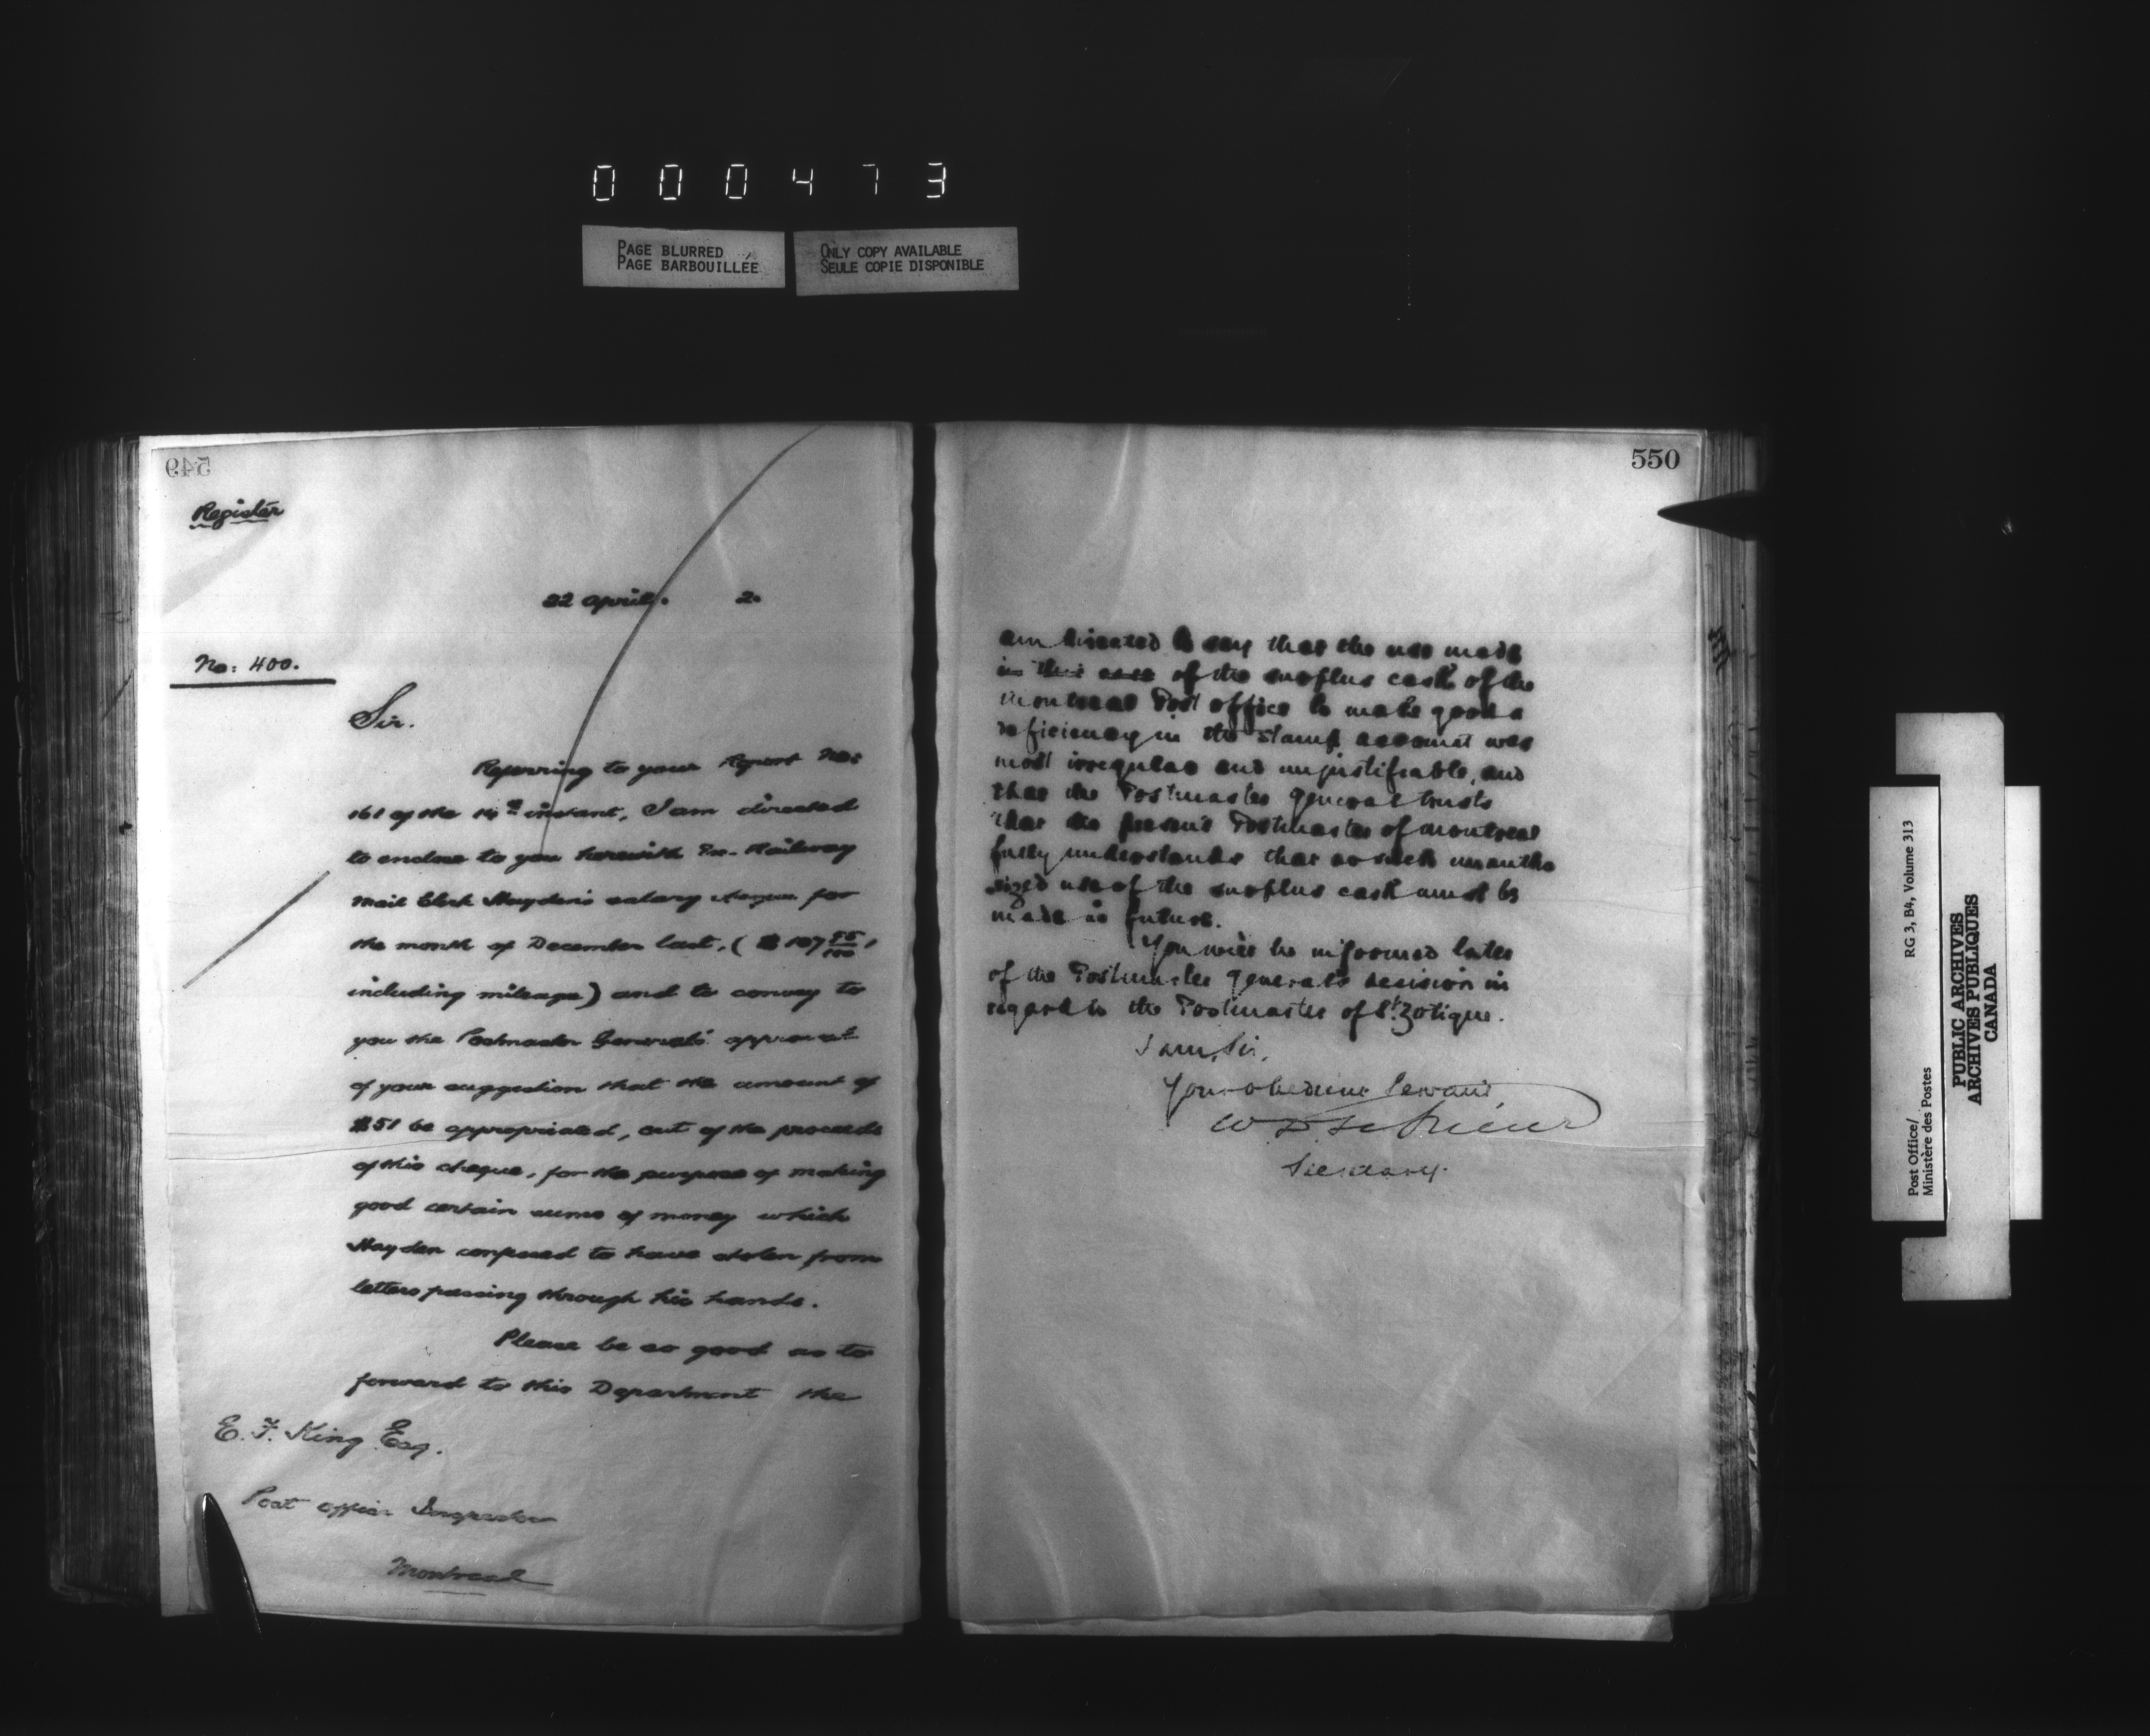 000473
PAGE BLURRED
PAGE BARBOUILLÉE
ONLY COPY AVAILABLE
SEULE COPIE DISPONIBLE
549
Register
22 April. 2.
No: 400.
Sir.
Referring to your Report No:
161 of the instant, I am directed
to enclose to you herewith Ex-Railway
Mail Clerk Hayden's salary cheque for
the month of December last, ($107 95/100,
including mileage) and to convey to
you the Postmaster General's approval
of your suggestion that the amount of
$51 be appropriated, out of the proceeds
of this cheque, for the purpose of making
good certain sums of money which
Hayden confessed to have stolen from
letters passing through his hands.
Please be so good as to
forward to this Department the
E. F. King Esq.
Post Office Inspector
Montreal
550
am directed to say that the use made
in this case of the surplus cash of the
Montreal Post Office to make good a
deficiency in the stamp account was
most irregular and unjustifiable, and
that the Postmaster General trusts
that the present Postmaster of Montreal
fully understands that no such unautho
rized use of the surplus cash must be
made in future.
You will be informed later
of the Postmaster General's decision in
regard to the Postmaster of St. Zotique.
I am, Sir,
Your obedient Servant,
Secretary.
Post Office/
Ministère des Postes
RG 3, B4, Volume 313
PUBLIC ARCHIVES
ARCHIVES PUBLIQUES
CANADA